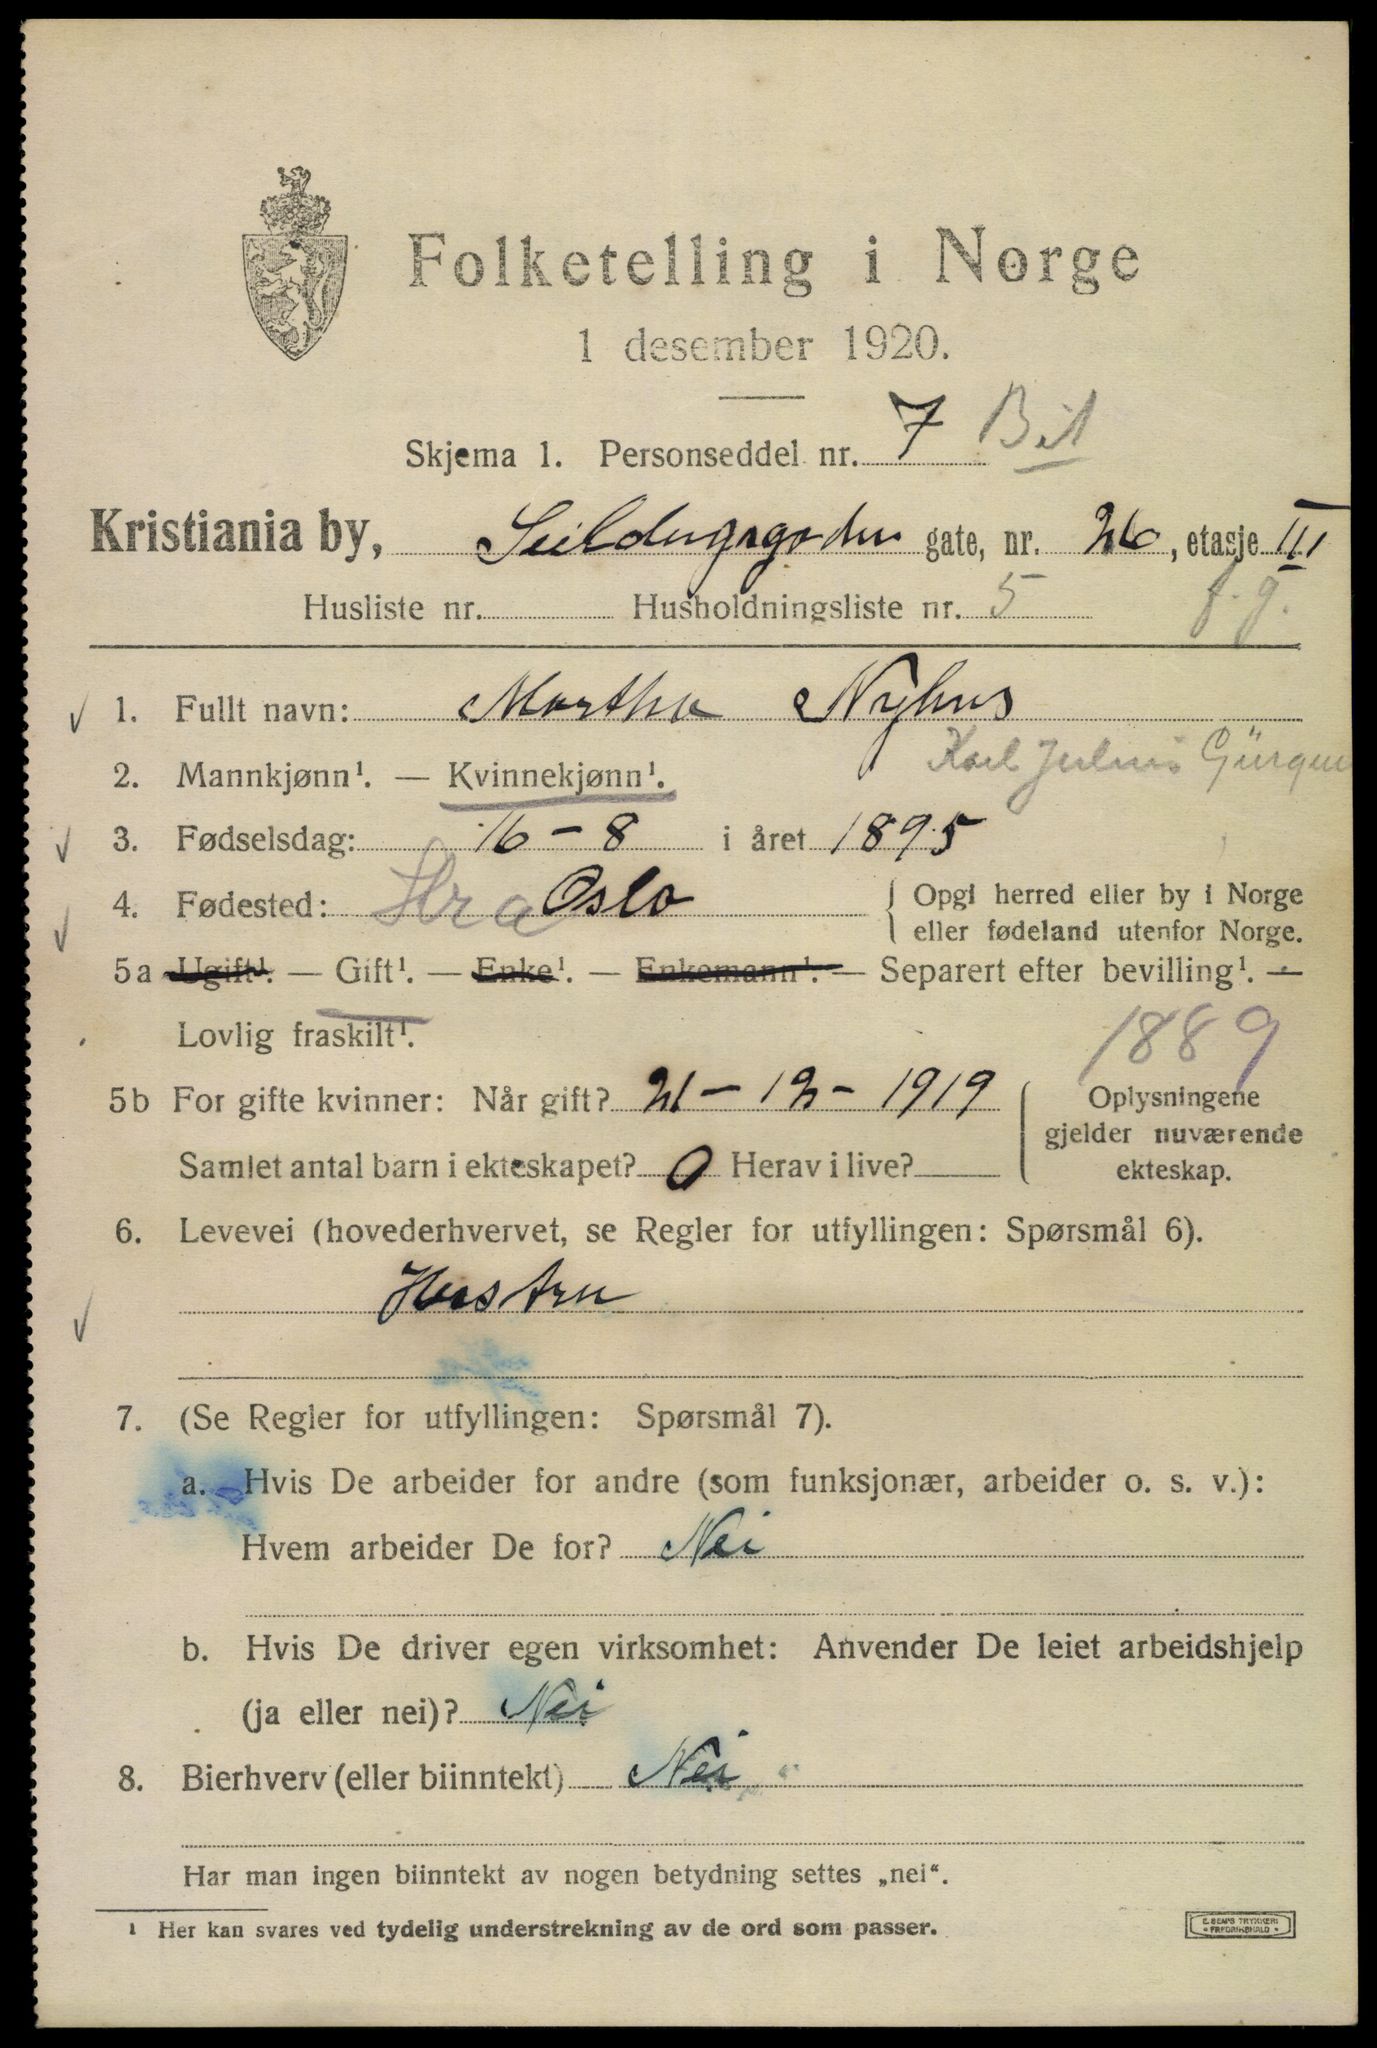 Folketelling i Norge
1 desember 1920.
Skjema 1. Personseddel nr. 7 Bil
Kristiania by, Seildugsgaden gate, nr. 26, etasje III
Husliste nr. Husholdningsliste nr. 5 f.g.
1. Fullt navn: Martha Nyhus
Karl Julius
2. Mannkjønn¹. — Kvinnekjønn¹.
3. Fødselsdag: 16 - 8 i året 1895
4. Fødested: Kra Oslo { Opgi herred eller by i Norge
eller fødeland utenfor Norge.
5a Ugift¹. — Gift¹. — Enke¹. — Enkemann¹. — Separert efter bevilling¹. —
Lovlig fraskilt¹.
1889
5b For gifte kvinner: Når gift? 21 - 12 - 1919
Samlet antal barn i ekteskapet? 0 Herav i live?
Oplysningene
gjelder nuværende
ekteskap.
6. Levevei (hovederhvervet, se Regler for utfyllingen: Spørsmål 6).
Hustru
7. (Se Regler for utfyllingen: Spørsmål 7).
a. Hvis De arbeider for andre (som funksjonær, arbeider o. s. v.):
Hvem arbeider De for? Nei
b. Hvis De driver egen virksomhet: Anvender De leiet arbeidshjelp
(ja eller nei)? Nei
8. Bierhverv (eller biinntekt) Nei
Har man ingen biinntekt av nogen betydning settes „nei“.
¹ Her kan svares ved tydelig understrekning av de ord som passer.
E. SEM'S TRYKKERI
• FREDRIKSHALD •